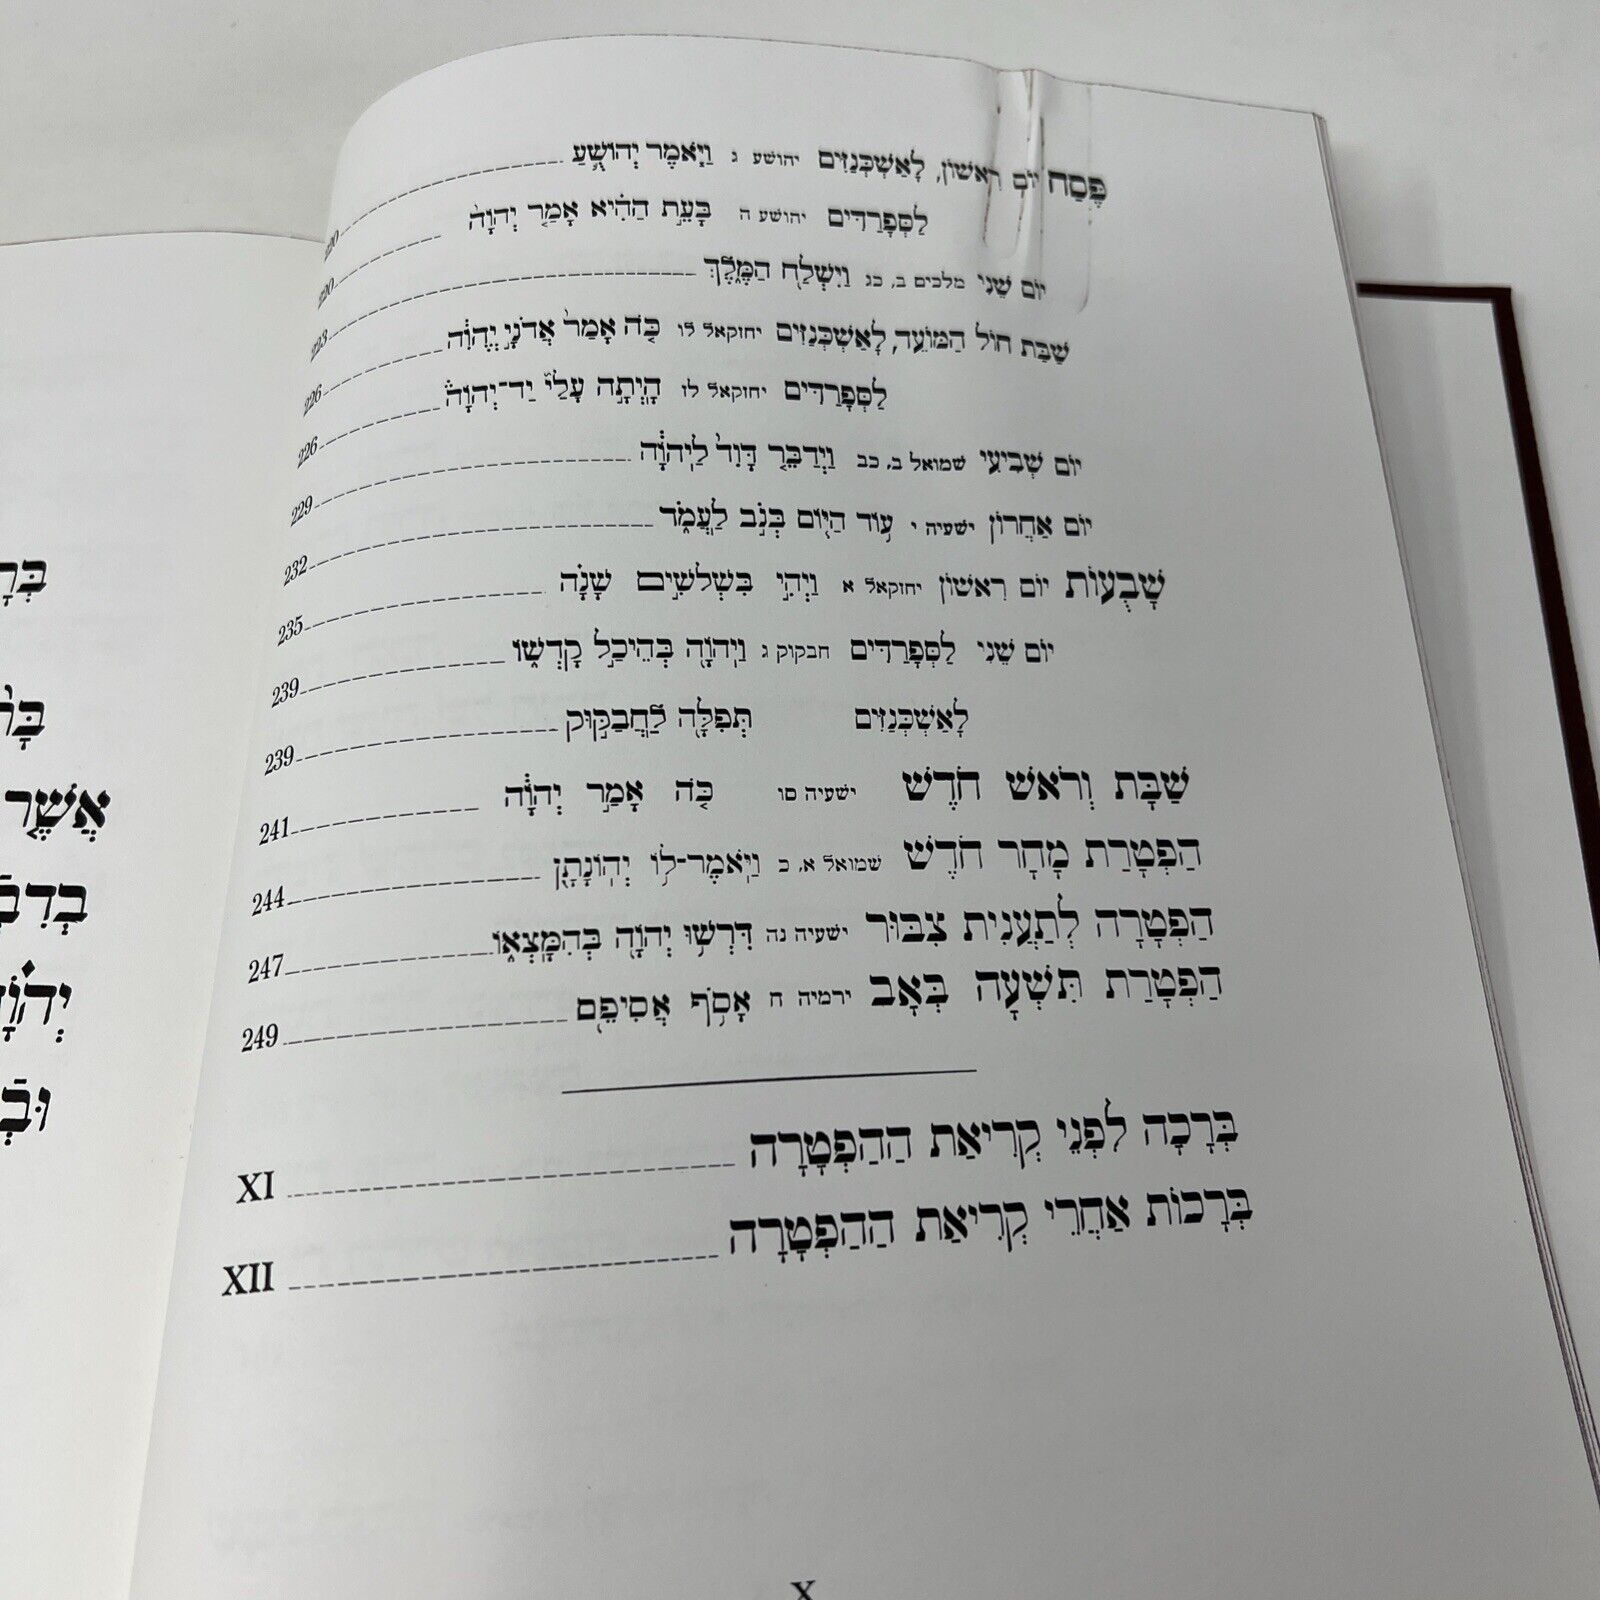 פֶּסַח יוֹם רִאשׁוֹן, לָאַשְׁכְּנַזִּים יהושע ג וַיֹּאמֶר יְהוֹשֻׁעַ 220
לַסְּפָרַדִּים יהושע ה בָּעֵת הַהִיא אָמַר יְהוָה 220
יוֹם שֵׁנִי מלכים ב, כג וַיִּשְׁלַח הַמֶּלֶךְ 223
שַׁבַּת חוֹל הַמּוֹעֵד, לָאַשְׁכְּנַזִּים יחזקאל לו כֹּה אָמַר אֲדֹנָי יֱהֹוִה 226
לַסְּפָרַדִּים יחזקאל לז הָיְתָה עָלַי יַד־יְהוָה 226
יוֹם שְׁבִיעִי שמואל ב, כב וַיְדַבֵּר דָּוִד לַיהֹוָה 229
יוֹם אַחֲרוֹן ישעיה י עוֹד הַיּוֹם בְּנֹב לַעֲמֹד 232
שָׁבֻעוֹת יוֹם רִאשׁוֹן יחזקאל א וַיְהִי בִּשְׁלֹשִׁים שָׁנָה 235
יוֹם שֵׁנִי לַסְּפָרַדִּים חבקוק ג וַיהוָה בְּהֵיכַל קָדְשׁוֹ 239
לָאַשְׁכְּנַזִּים תְּפִלָּה לַחֲבַקּוּק 239
שַׁבָּת וְרֹאשׁ חֹדֶשׁ ישעיה סו כֹּה אָמַר יְהוָה 241
הַפְטָרַת מָחָר חֹדֶשׁ שמואל א, כ וַיֹּאמֶר־לוֹ יְהוֹנָתָן 244
הַפְטָרָה לְתַעֲנִית צִבּוּר ישעיה נה דִּרְשׁוּ יְהוָה בְּהִמָּצְאוֹ 247
הַפְטָרַת תִּשְׁעָה בְּאָב ירמיה ח אָסֹף אֲסִיפֵם 249
בְּרָכָה לִפְנֵי קְרִיאַת הַהַפְטָרָה XI
בְּרָכוֹת אַחֲרֵי קְרִיאַת הַהַפְטָרָה XII
X
אֲשֶׁר